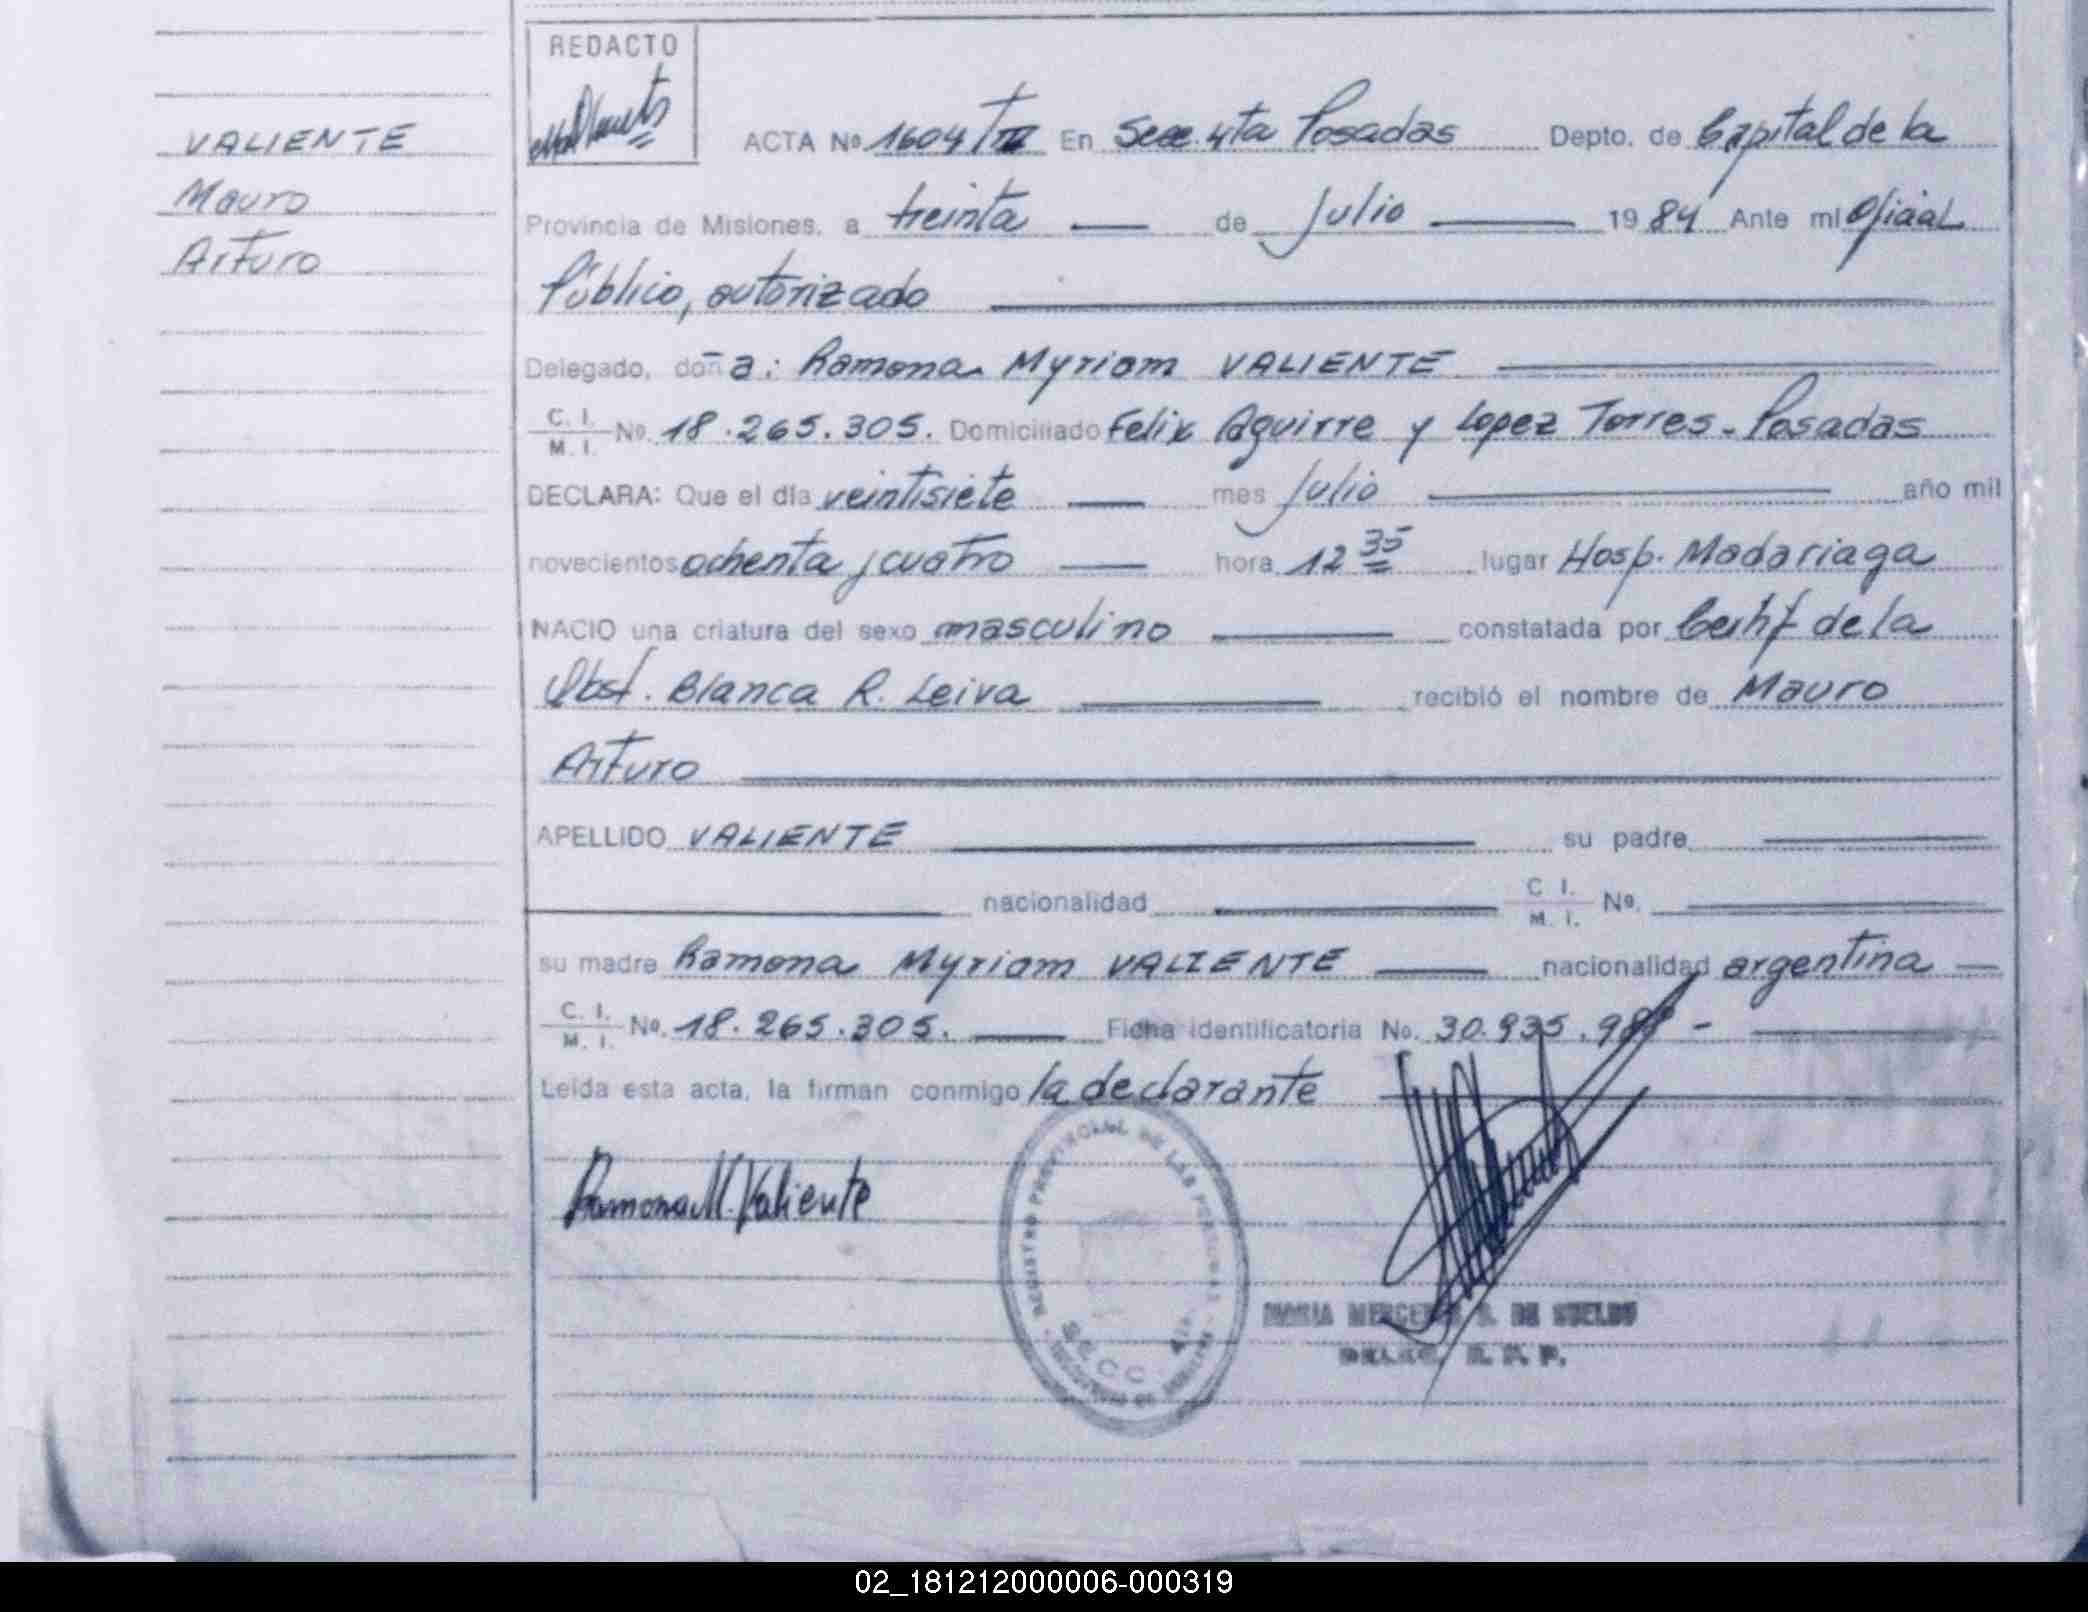 REDACTO
VALIENTE
Mauro
Arturo
ACTA Nº 1604/ En Secc. 4ta Posadas Depto. de Capital de la
Provincia de Misiones, a treinta de Julio 1984 Ante mi Oficial
Público, autorizado
Delegado, doña: Ramona Myriam VALIENTE
C. I.
M. I. Nº. 18.265.305. Domiciliado Felix Aguirre y Lopez Torres - Posadas
DECLARA: Que el día veintisiete mes Julio año mil
novecientos ochenta y cuatro hora 12 35 lugar Hosp. Madariaga
NACIO una criatura del sexo masculino constatada por Certif de la
Obst. Blanca R. Leiva recibió el nombre de Mauro
Arturo
APELLIDO VALIENTE su padre
nacionalidad C. I. M. I. Nº.
su madre Ramona Myriam VALIENTE nacionalidad argentina
C. I.
M. I. Nº. 18.265.305. Ficha identificatoria No. 30.935.98
Leida esta acta, la firman conmigo la declarante
Ramona M. Valiente
REGISTRO PROVINCIAL DE LAS PERSONAS
MARIA MERCEDES S. DE SUELDO
DELEG. R. P. P.
02_181212000006-000319